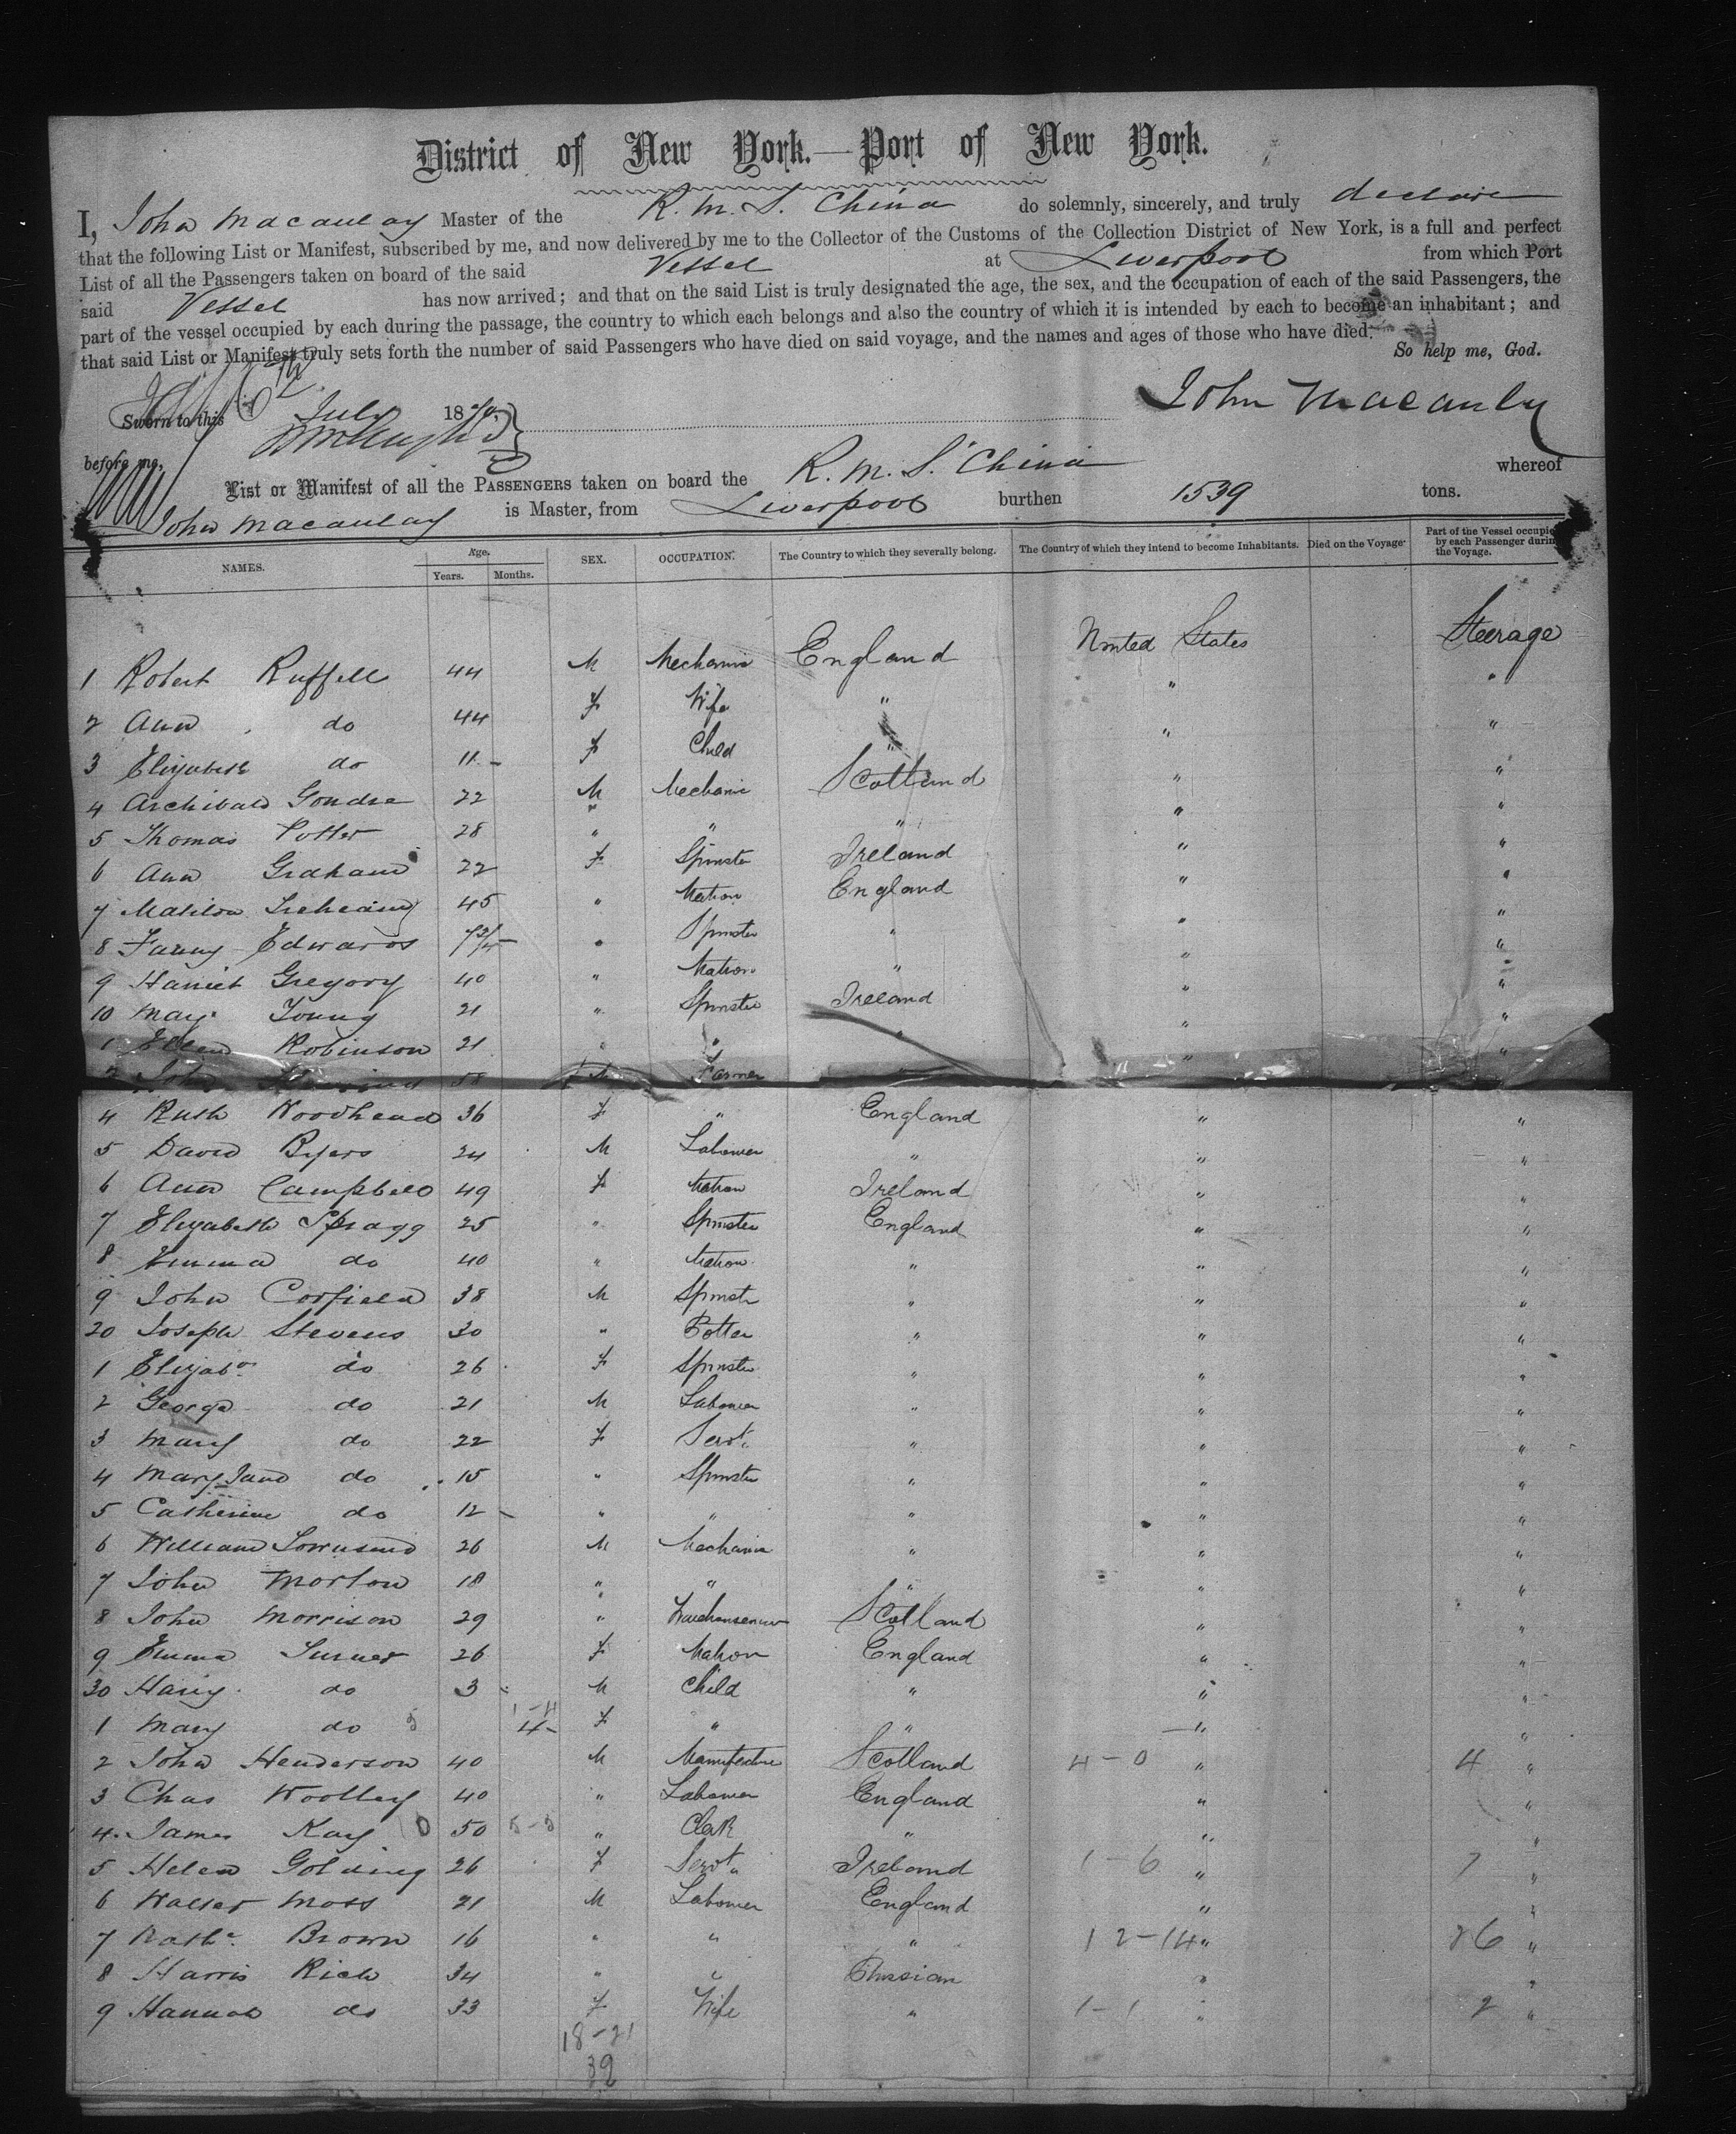 District of New York.—Port of New York.
I, John Macaulay Master of the R. M. S. China do solemnly, sincerely, and truly declare
that the following List or Manifest, subscribed by me, and now delivered by me to the Collector of the Customs of the Collection District of New York, is a full and perfect
List of all the Passengers taken on board of the said Vessel at Liverpool from which Port
said Vessel has now arrived; and that on the said List is truly designated the age, the sex, and the occupation of each of the said Passengers, the
part of the vessel occupied by each during the passage, the country to which each belongs and also the country of which it is intended by each to become an inhabitant; and
that said List or Manifest truly sets forth the number of said Passengers who have died on said voyage, and the names and ages of those who have died.
So help me, God.
Sworn to this July 1870
John Macaulay
before me,
List or Manifest of all the PASSENGERS taken on board the R. M. S. China whereof
John Macaulay is Master, from Liverpool burthen 1539 tons.
NAMES. Age. Years. Months. SEX. OCCUPATION. The Country to which they severally belong. The Country of which they intend to become Inhabitants. Died on the Voyage. Part of the Vessel occupied by each Passenger during the Voyage.
1 Robert Ruffell 44 M Mechanic England United States Steerage
2 Ann do 44 F Wife " " "
3 Elizabeth do 11 - F Child " " "
4 Archibald 22 M Mechanic Scotland " "
5 Thomas Potter 28 " " " " "
6 Ann Graham 22 F Spinster Ireland " "
7 Matilda 45 " Matron England " "
8 Fanny Edwards " Spinster " " "
9 Harriet Gregory 40 " Matron " " "
10 Mary Young 21 " Spinster Ireland " "
1 Ellen Robinson 21 " " " " "
2 John 58 M Farmer " " "
4 Ruth Woodhead 36 F " England " "
5 David Byers 24 M Labourer " " "
6 Ann Campbell 49 F Matron Ireland " "
7 Elizabeth Spragg 25 " Spinster England " "
8 Emma do 40 " Matron " " "
9 John Corfield 38 M Spinstr " " "
20 Joseph Stevens 30 " Potter " " "
1 Elizab. do 26 F Spinster " " "
2 George do 21 M Labourer " " "
3 Mary do 22 F Servt. " " "
4 Mary Jane do 15 " Spinster " " "
5 Catherine do 12 - " " " " "
6 William Townsend 26 M Mechanic " " "
7 John Morton 18 " " " " "
8 John Morrison 29 " Warehouseman Scotland " "
9 Emma Turner 26 F Matron England " "
30 Harry do 3 M Child " " "
1 Mary do 4 - F " " " "
2 John Henderson 40 M Manufacture Scotland 4-0 " 4 "
3 Chas Woolley 40 " Labourer England " "
4 James Kay 50 " Clerk " " "
5 Helen Golding 26 F Servt. Ireland 1-6 " 7 "
6 Walter Moss 21 M Labourer England " "
7 Nathl. Brown 16 " " " 12-14 " 26 "
8 Harris Rich 34 " " Prussian " "
9 Hannah do 33 F Wife " 1-1 " 2 "
18-21
39